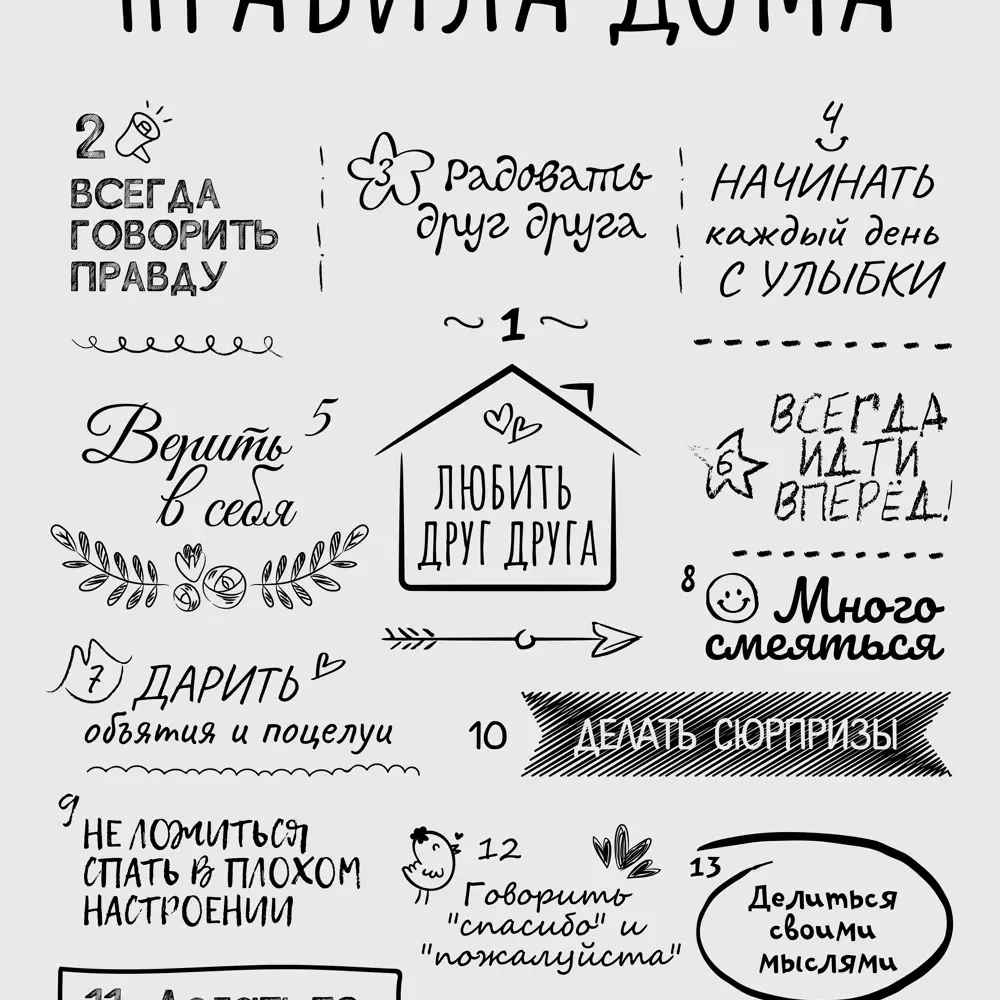 ПРАВИЛА ДОМА
2
ВСЕГДА
ГОВОРИТЬ
ПРАВДУ
3 Радовать
друг друга
4
НАЧИНАТЬ
каждый день
С УЛЫБКИ
~ 1 ~
ЛЮБИТЬ
ДРУГ ДРУГА
Верить 5
в себя
6
ВСЕГДА
ИДТИ
ВПЕРЁД!
7 ДАРИТЬ
объятия и поцелуи
8 Много
смеяться
10 ДЕЛАТЬ СЮРПРИЗЫ
9
НЕ ЛОЖИТЬСЯ
СПАТЬ В ПЛОХОМ
НАСТРОЕНИИ
12
Говорить
"спасибо" и
"пожалуйста"
13
Делиться
своими
мыслями
11